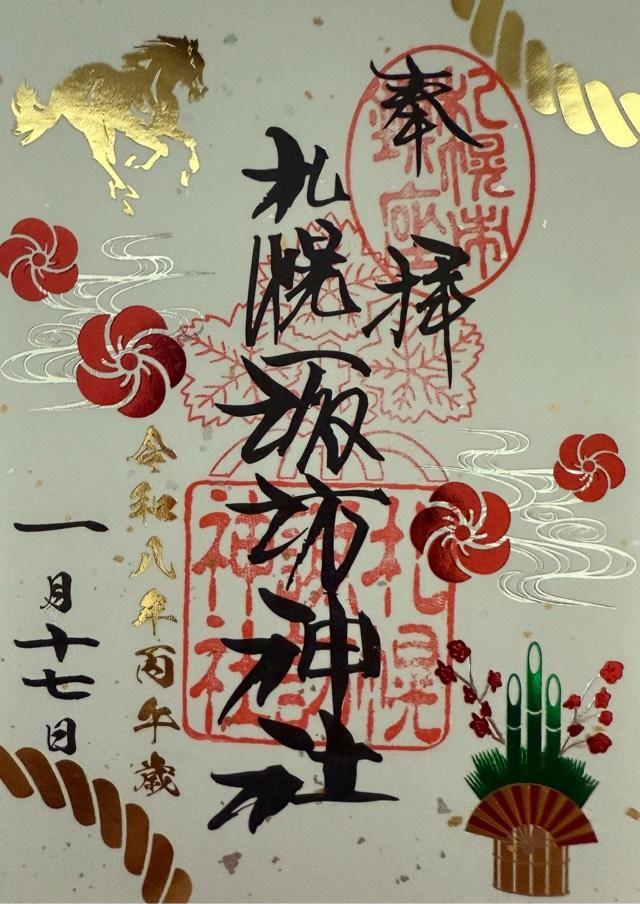 奉拝
札幌市
鎮座
札幌諏訪神社
札幌
諏訪
神社
令和八年丙午歳
一月十七日